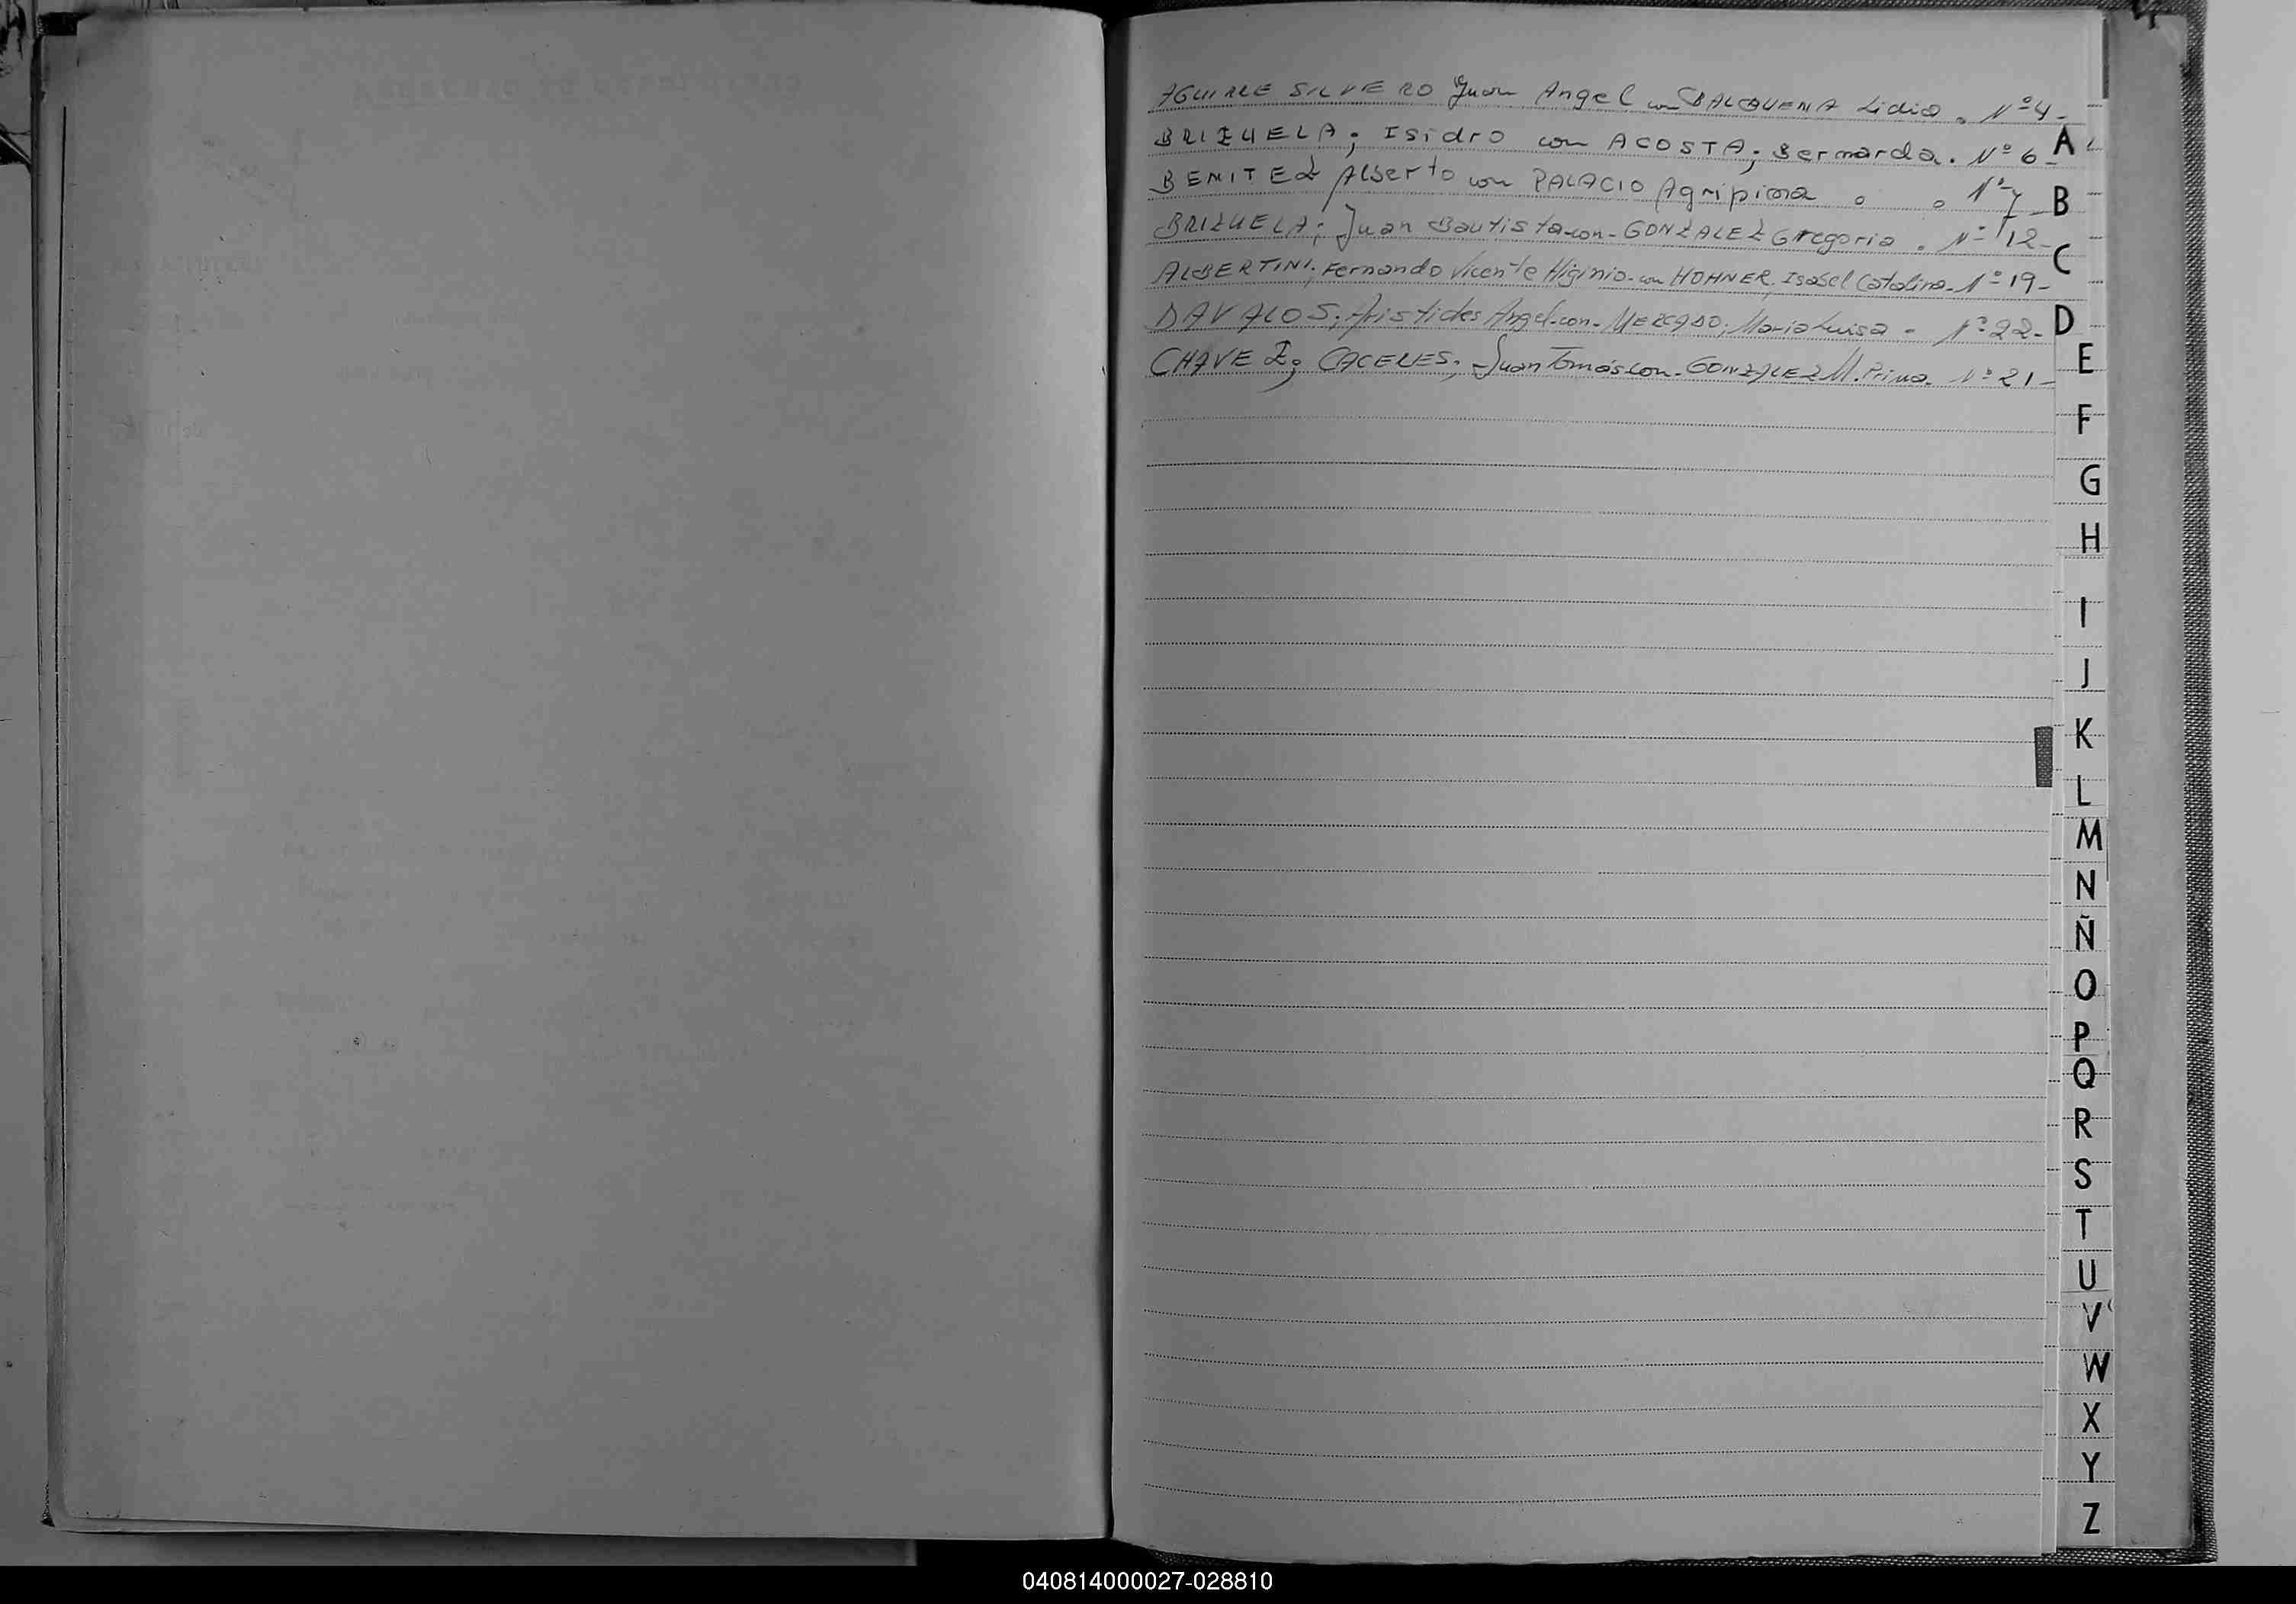 AGUIRRE SILVERO Juan Angel con BALBUENA Lidia. Nº 4-
BRIZUELA; Isidro con ACOSTA; Bernarda. Nº 6-
BENITEZ Alberto con PALACIO Agripina Nº 7
BRIZUELA; Juan Bautista-con-GONZALEZ Gregoria. Nº 12-
ALBERTINI; Fernando Vicente Higinio-con HOHNER, Isabel Catalina-Nº 19-
DAVALOS; Aristides Angel-con-MERCADO; Maria Luisa - Nº 22-
CHAVEZ; CACERES; Juan Tomás con-GONZALEZ M. Prima. Nº 21-
A
B
C
D
E
F
G
H
I
J
K
L
M
N
Ñ
O
P
Q
R
S
T
U
V
W
X
Y
Z
040814000027-028810